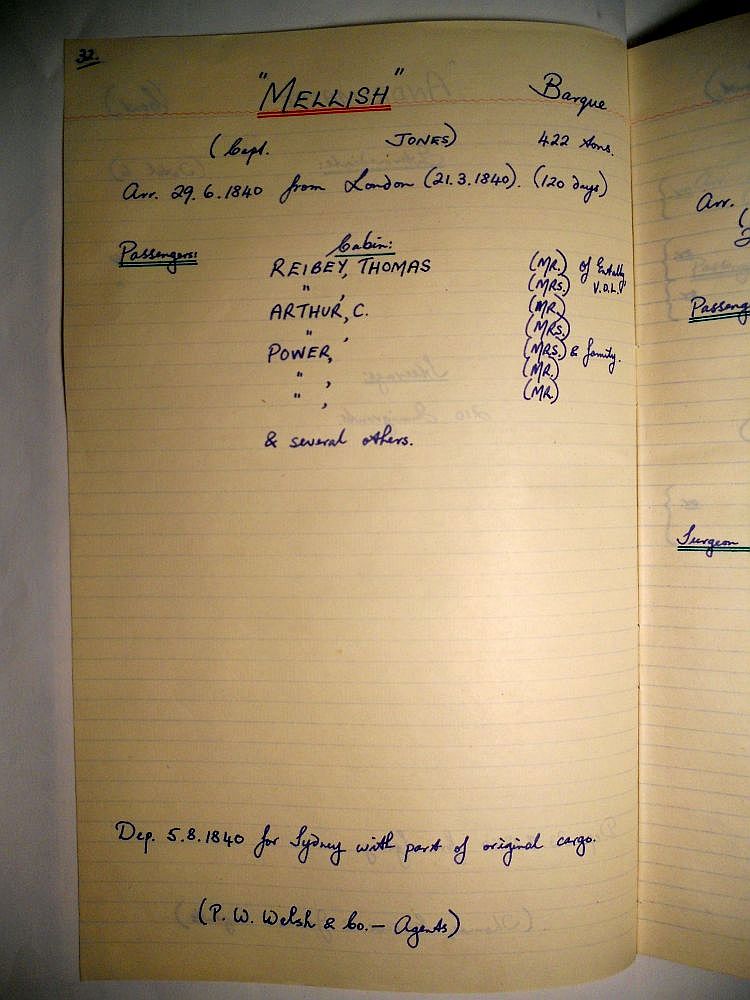 32.
"MELLISH" Barque
(Capt. JONES) 422 tons.
Arr. 29.6.1840 from London (21.3.1840). (120 days)
Passengers: Cabin:
REIBEY, THOMAS (MR.) of Entally
" , (MRS.) V.D.L.
ARTHUR, C. (MR.
" , (MRS.)
POWER, (MRS.) & family.
" , (MR.)
" , (MR)
& several others.
Dep. 5.8.1840 for Sydney with part of original cargo.
(P. W. Welsh & Co. — Agents)
Arr.
(
Passeng
Surgeon